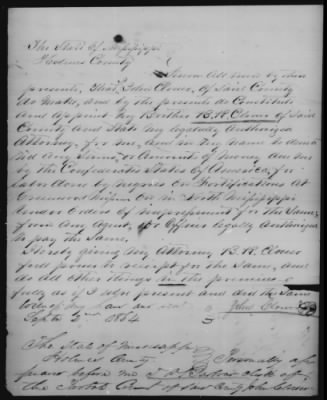 The State of Mississippi
Holmes County
Know all men by these
presents, that John Clower, of Said County
do make, and by the presents do Constitute
and appoint my Brother B. R. Clower of Said
County and State my legally Authorized
Attorney, for me, and in my name to dema
nd any Sums, or Amounts of money due me
by the Confederate States of America, for
labor done by Negroes on Fortifications At
Greenwood in North Mississippi
under Orders of impressment for the Same,
from any Agent, or Officer legally Authorized
to pay the Same.
Hereby giving my Attorney B. R. Clower
full power to receipt for the Same, and
do all other things in the premises as
fully as if I was present and did the Same
Witness my hand and seal
Sept 2nd 1864 John Clower
The State of Mississippi
Holmes County Personally ap
peared before me clerk of
the Probate Court of Said County John Clower